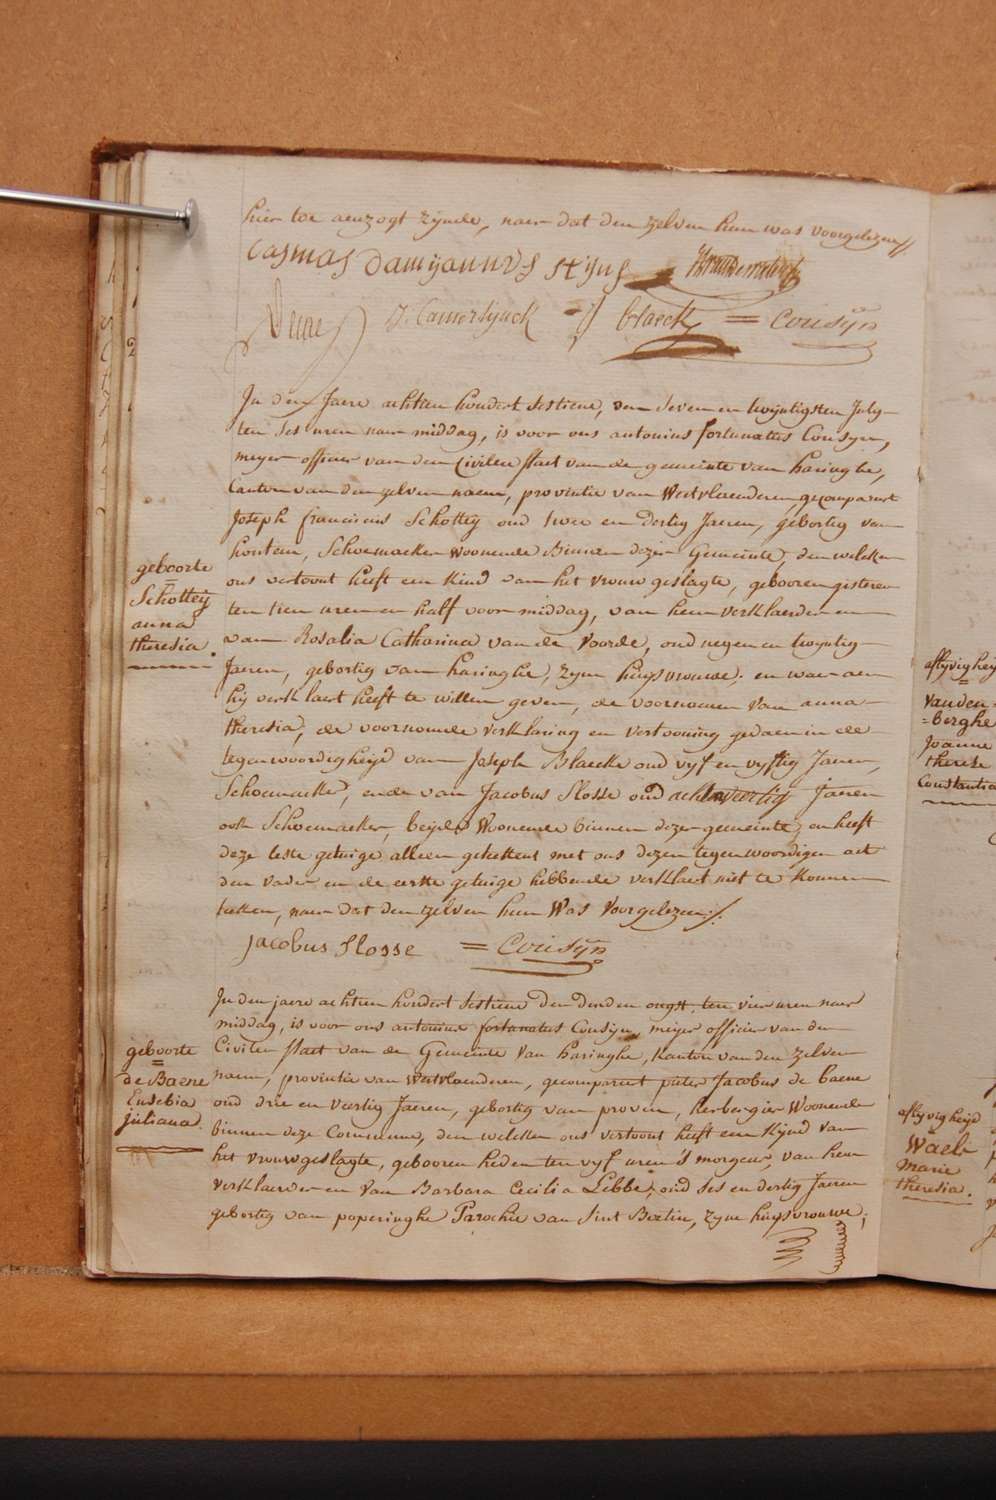 hier toe aenzogt zijnde, naer dat den zelven hem was voorgelezen //
Casmas damijannus stijns
J. Camerlynck blaeck = Cousÿn
In den Jaere achtien hondert sestiene, den seven en twijntigsten July
ten ses uren naer middag, is voor ons antonius fortunatus Cousyn,
meyer officier van den Civilen staet van de gemeinte van haringhe,
Canton van den zelven naem, provintie van Westvlaenderen, gecompareert
Joseph franciscus Schottey oud twee en dertig Jaeren, gebortig van
houtem, Schoemaeker woonende Binnen dezer Gemeinte, den welken
ons vertoont heeft een kind van het vrouw geslagte, gebooren gisteren
ten tien uren en half voor middag, van hem verklaerder en
van Rosalia Catharina van de Voorde, oud negen en twijntig
Jaeren, gebortig van haringhe, zijne huysvrouwe; en waer aen
hij verklaert heeft te willen geven, de voornaemen van anna
theresia, de voornoemde verklaring en vertooning gedaen in de
tegenwoordigheyd van Joseph Blaecke oud vyf en vyftig Jaeren,
Schoemaeker, ende van Jacobus Slosse oud achtenveertig Jaeren
ook Schoemaeker, beijde Woonende binnen dezer gemeinte, en heeft
deze leste getuige alleen geteekent met ons dezen tegenwoordigen act
den vader en de eerste getuige hebbende verklaert niet te konnen
teeken, naer dat den zelven hem Was Voorgelezen ./.
Jacobus Slosse = Cousÿn
geboorte
=
Schottey
anna
theresia.
In den jaere achtien hondert sestiene den derden ougst, ten vier uren naer
middag, is voor ons antonius fortunatus Cousyn, meyer officier van den
Civilen staet van de Gemeinte van haringhe, Kanton van den zelven
naem, provintie van Westvlaenderen, gecompareert pieter Jacobus de baene
oud drie en veertig Jaeren, gebortig van proven, herbergier Woonende
binnen deze Commune, den welken ons vertoont heeft een Kynd van
het vrouwgeslagte, gebooren heden ten vyf uren 's morgens, van hem
verklaerder en van Barbara Cecilia Lebbe, oud ses en dertig Jaeren
gebortig van poperinghe Parochie van Sint Bertin, zyne huysvrouwe;
geboorte
=
de Baene
Eusebia
juliana.
aflyvigheyd
=
Vanden=
=berghe
Joanne
therese
Constantia
aflyvigheyd
Waele
marie
theresia.